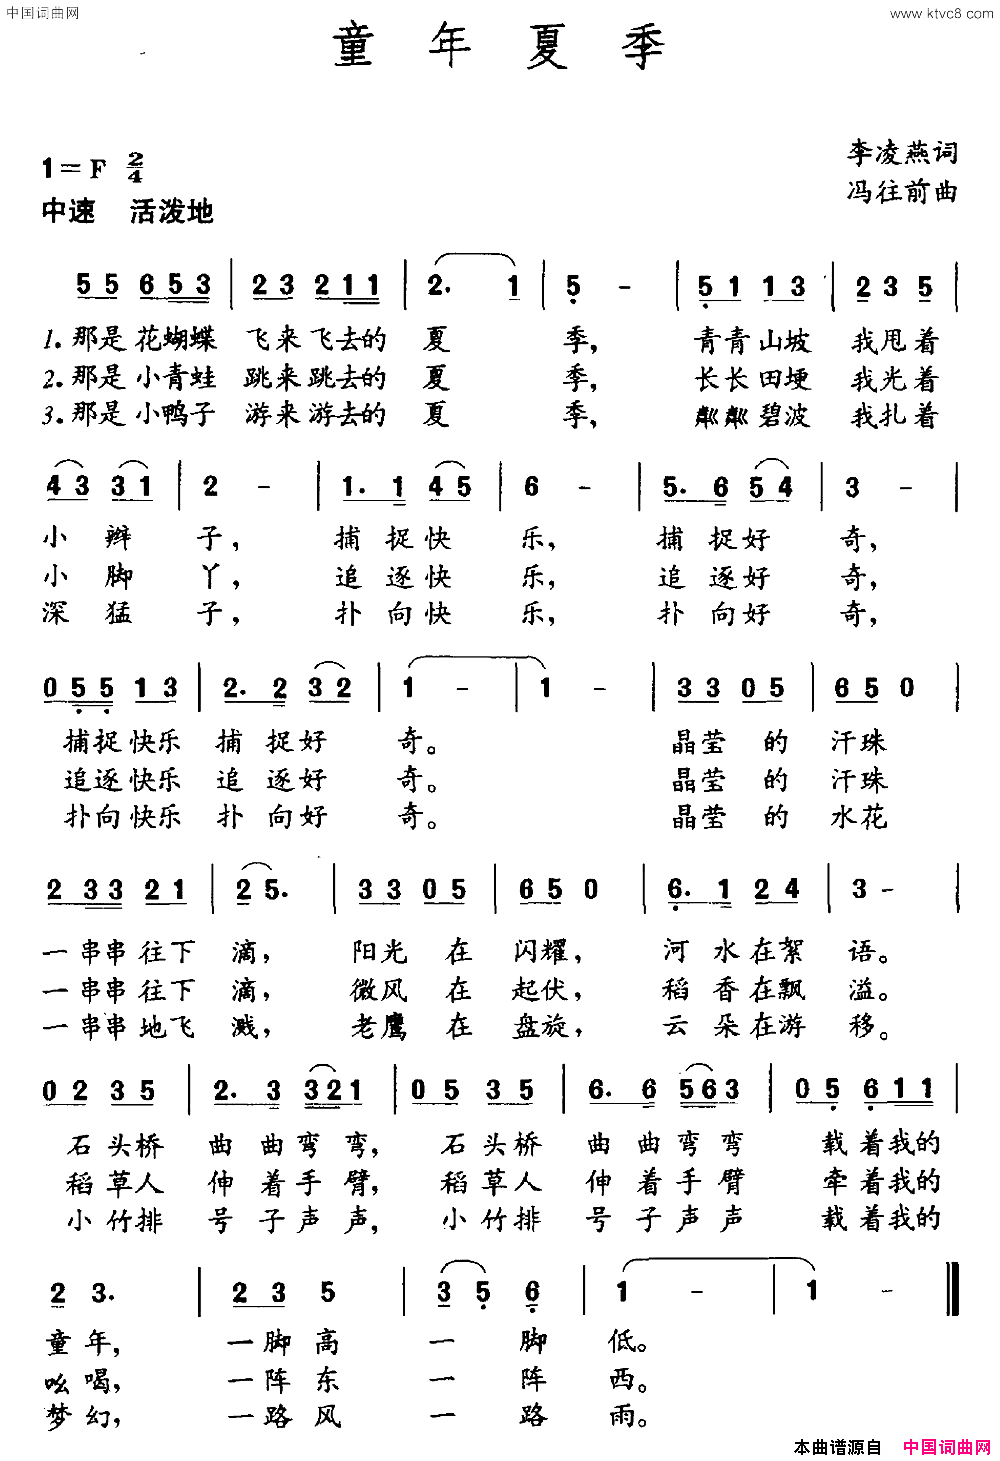 中国词曲网
www.ktvc8.com
童年夏季
1=F 2/4
李凌燕词
中速 活泼地
冯往前曲
55 653 | 23 211 | 2. 1 | 5 - | 51 13 | 23 5 |
1.那是花蝴蝶 飞来飞去的 夏 季, 青青山坡 我甩着
2.那是小青蛙 跳来跳去的 夏 季, 长长田埂 我光着
3.那是小鸭子 游来游去的 夏 季, 粼粼碧波 我扎着
43 31 | 2 - | 1. 1 45 | 6 - | 5. 6 54 | 3 - |
小辫 子, 捕捉快 乐, 捕捉好 奇,
小脚 丫, 追逐快 乐, 追逐好 奇,
深猛 子, 扑向快 乐, 扑向好 奇,
055 13 | 2. 2 32 | 1 - | 1 - | 33 05 | 650 |
捕捉快乐 捕捉好 奇。 晶莹的 汗珠
追逐快乐 追逐好 奇。 晶莹的 汗珠
扑向快乐 扑向好 奇。 晶莹的 水花
2 33 21 | 2 5. | 33 05 | 650 | 6. 1 24 | 3 - |
一串串往下 滴, 阳光在 闪耀, 河水在絮 语。
一串串往下 滴, 微风在 起伏, 稻香在飘 溢。
一串串地飞 溅, 老鹰在 盘旋, 云朵在游 移。
0 2 35 | 2. 3 321 | 05 35 | 6. 6 563 | 05 611 |
石头桥 曲曲弯弯, 石头桥 曲曲弯弯 载着我的
稻草人 伸着手臂, 稻草人 伸着手臂 牵着我的
小竹排 号子声声, 小竹排 号子声声 载着我的
2 3. | 23 5 | 35 6 | 1 - | 1 - ‖
童年, 一脚高 一脚 低。
吆喝, 一阵东 一阵 西。
梦幻, 一路风 一路 雨。
本曲谱源自 中国词曲网